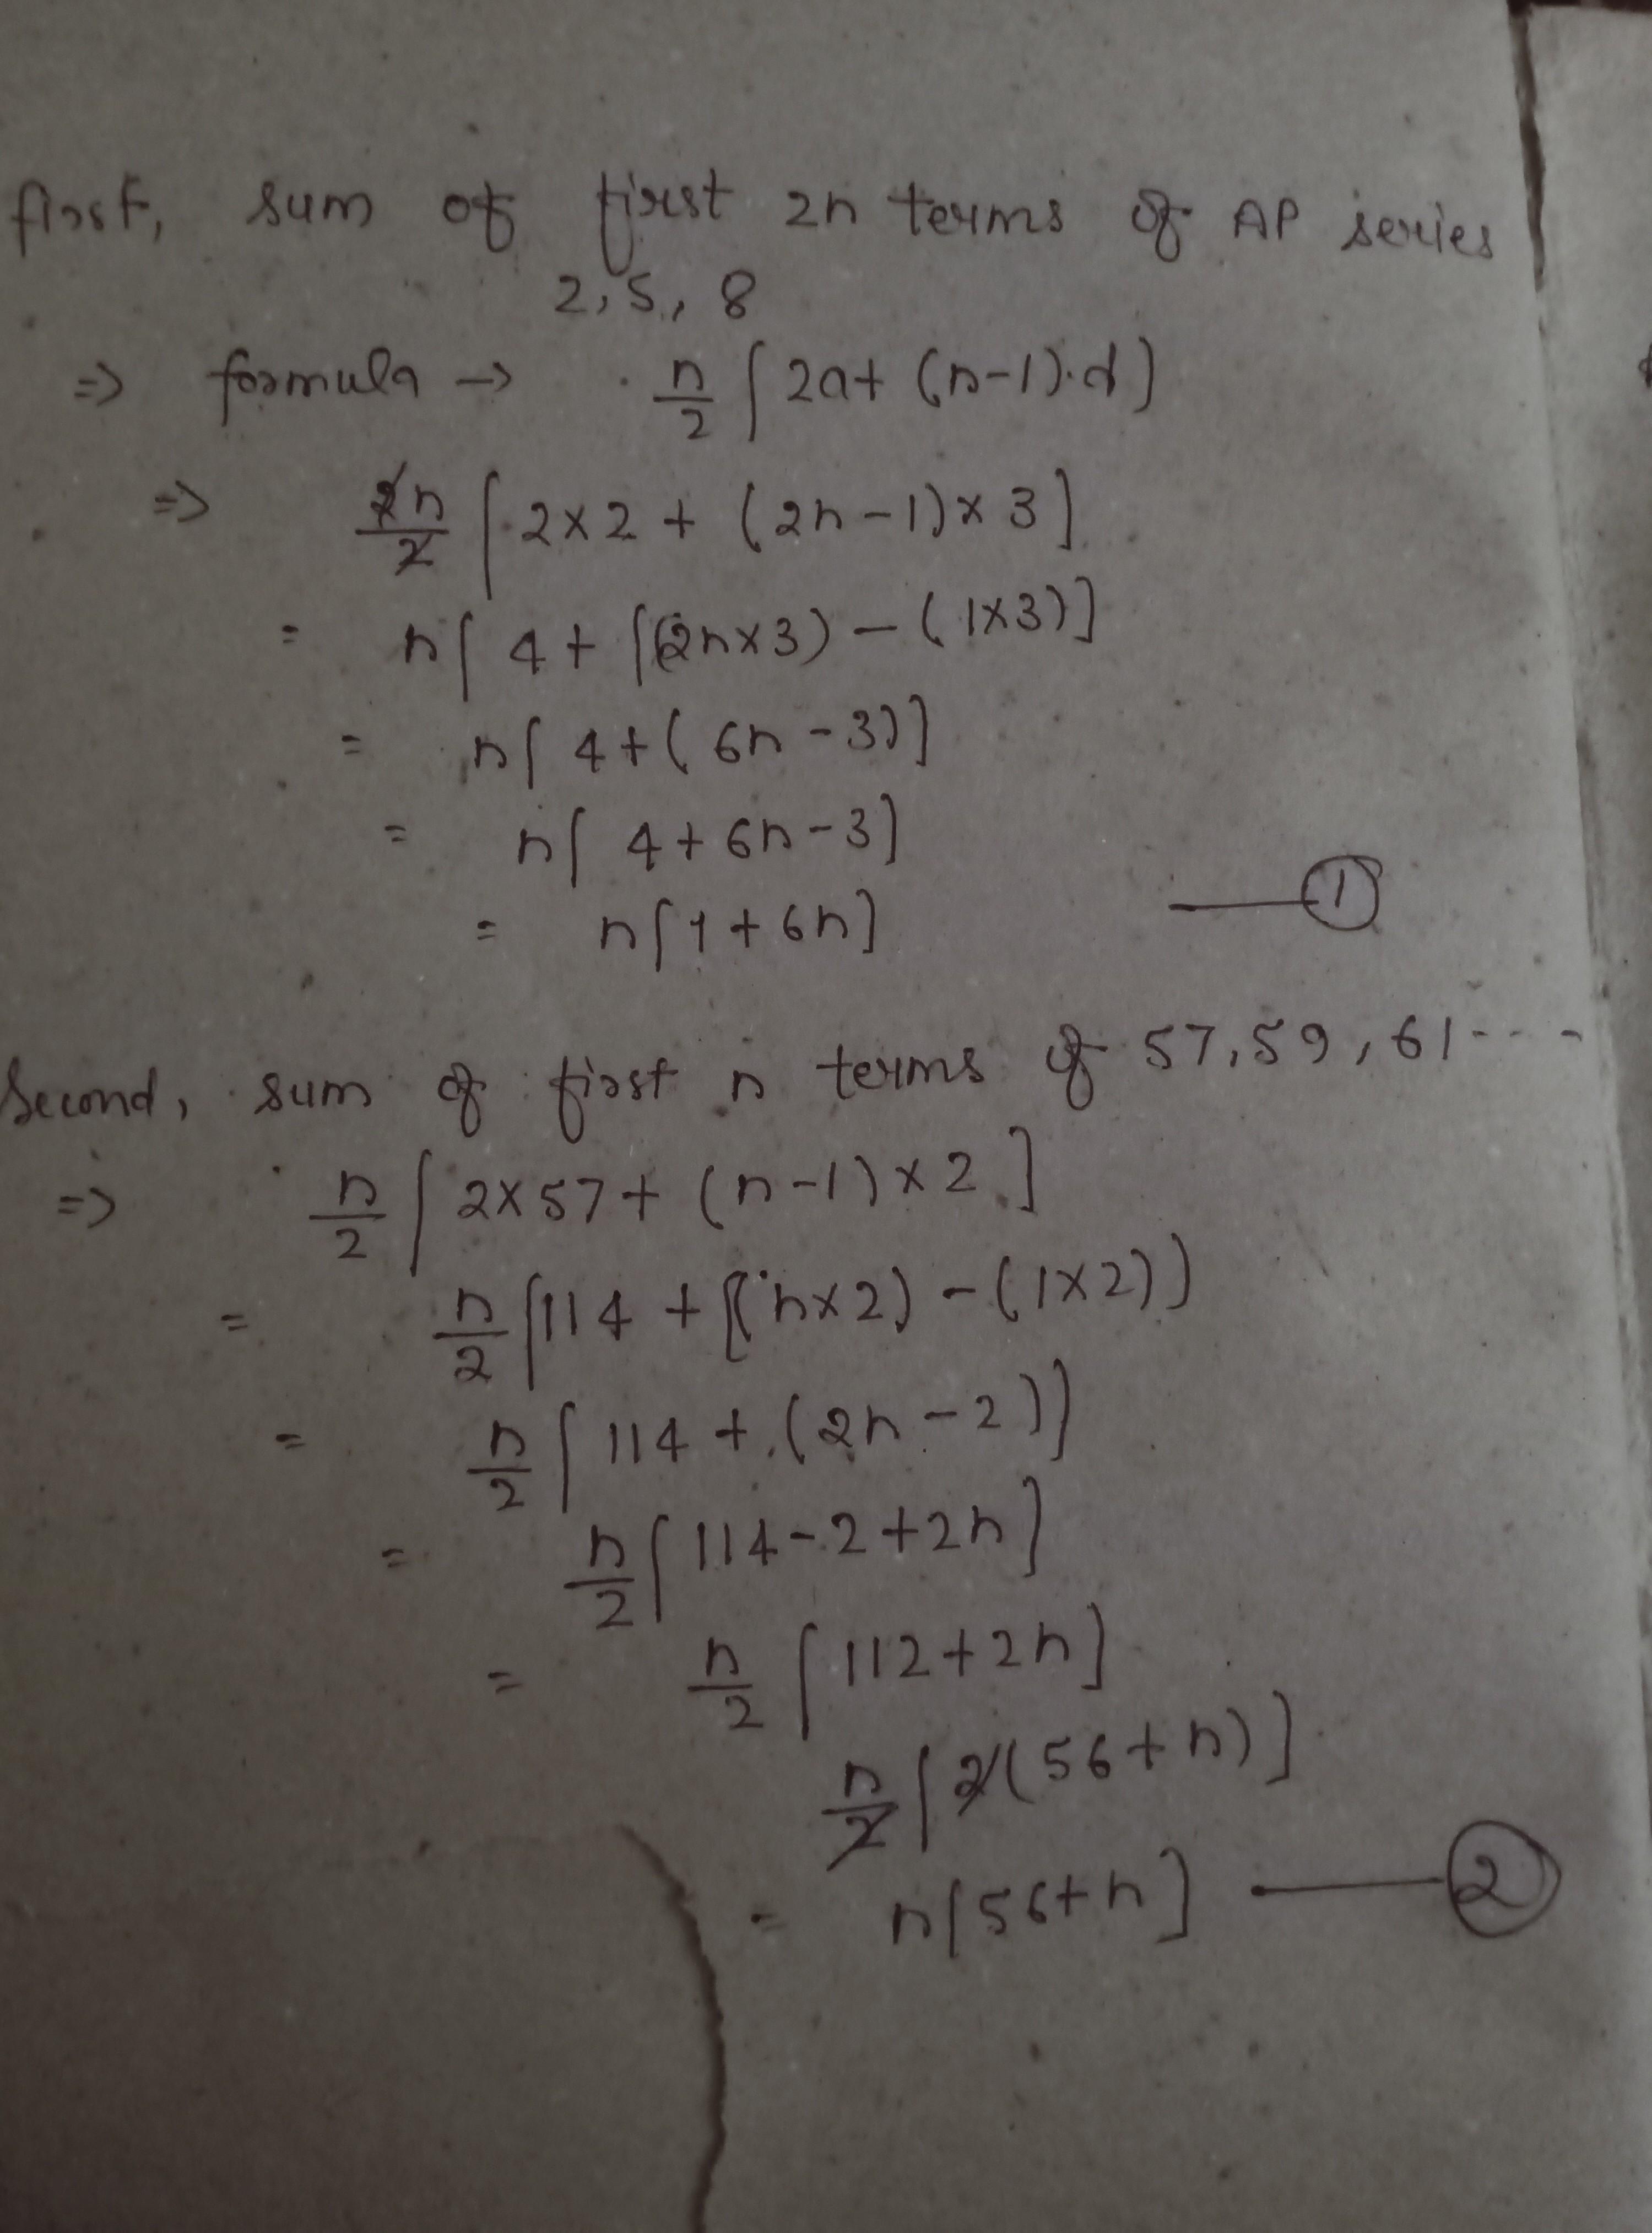 first, sum of first 2n terms of AP series
2, 5, 8
=> formula -> n/2 [2a+ (n-1).d]
=> 2n/2 [2×2 + (2n-1)×3]
= n[4+ [(2n×3) - (1×3)]
= n[4+(6n-3)]
= n[4+6n-3]
= n[1+6n] — ①
Second, sum of first n terms of 57, 59, 61----
=> n/2 [2×57+ (n-1)×2]
= n/2 [114 + [(n×2) - (1×2)]
= n/2 [114 + (2n-2)]
= n/2 [114-2+2n]
= n/2 [112+2n]
n/2 [2(56+n)]
= n[56+n] — ②